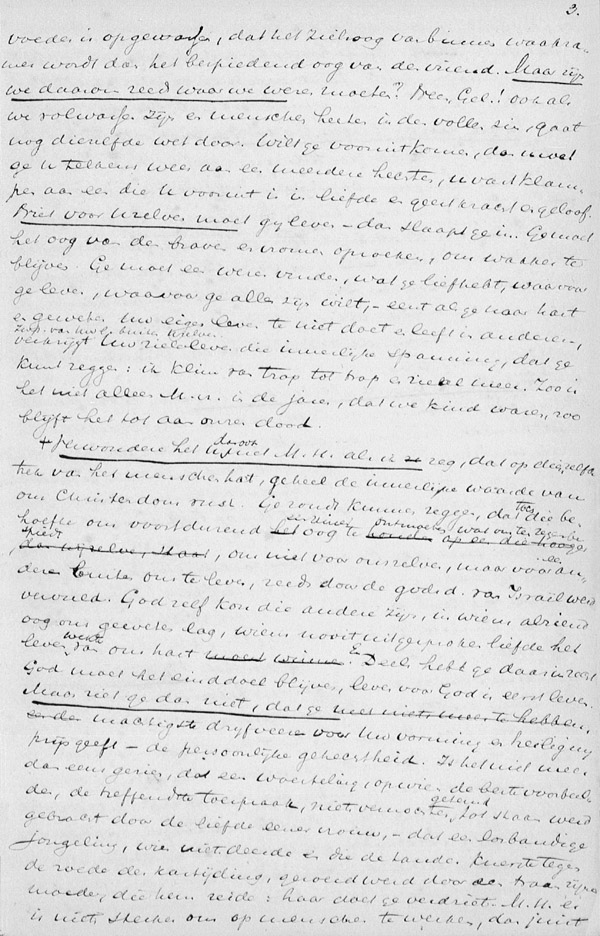 3.
voeder is opgewassen, dat het zielsoog van binnen waakza-
mer wordt dan het bespiedend oog van de vriend. Maar zijn
we daarom reeds waar we wezen moeten? Neen, Gel.! ook als
we volwassen zijn en menschen heeten in den vollen zin, gaat
nog diezelfde wet door. Wilt ge vooruitkomen, dan moet
ge u telkens weer aan een meerdere hechten, u vast klam-
pen aan een die u vooruit is in liefde en geestkracht en geloof.
Niet voor uzelven moet gij leven - dan slaapt ge in. Ge moet
het oog van den braven en vromen opzoeken, om wakker te
blijven. Ge moet een wezen vinden, wat ge liefhebt, waarvoor
ge leven, waarvoor ge alles zijn wilt, - eerst als ge naar hart
en geweten uw eigen leven te niet doet en leeft in anderen,
verkrijgt uw zieleleven die innerlijke spanning, dat ge
kunt zeggen: ik klim van trap tot trap en niet meer. Zoo is
het niet alleen M.H. in de jaren, dat we kind waren, zoo
blijft het tot aan onzen dood.
Verwondere het u niet M.H. als ik zeg, dat op dienzelfden
trek van het menschenhart, geheel de innerlijke waarde van
ons Christendom rust. Ge zoudt kunnen zeggen, dat die be-
hoefte om voortdurend het oog te ontmoeten, wat ons
om niet voor onszelven, maar voor an-
deren buiten ons te leven, reeds door de godsd. van Israel werd
vervuld. God zelf kon die andere zijn, in wiens alziend
oog ons geweten lag, wiens nooit uitgesproken liefde het
leven van ons hart moest winnen. En Deels hebt ge daarin recht
God moet het einddoel blijven, leven voor God is eerst leven.
Maar ziet ge dan niet, dat ge
machtigste drijfveer voor uw vorming en heiliging
prijsgeeft - de persoonlijke gehechtheid. Is het niet meer
dan eens gezien, dat een woesteling, op wien de beste voorbeel-
den, de treffendste toespraak, niets vermochten, tot staan werd
gebracht door de liefde eener vrouw, - dat een losbandige
Jongeling, wien niet deerde en die de tanden knerste tegen
de roede der kastijding, gewond werd door een traan zijner
moeder, die hem zeide: haar doet ge verdriet. M.H. er
is niets sterker om op menschen te werken, dan juist